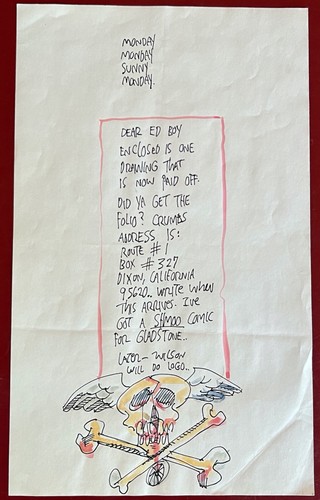 MONDAY
MONDAY
SUNNY
MONDAY.
DEAR ED BOY
ENCLOSED IS ONE
DRAWING THAT
IS NOW PAID OFF.
DID YA GET THE
FOLIO? CRUMBS
ADDRESS IS:
ROUTE #1
BOX #327
DIXON, CALIFORNIA
95620.. WRITE WHEN
THIS ARRIVES. I'VE
GOT A SHMOO COMIC
FOR GLADSTONE..
LATER - WILSON
WILL DO LOGO..